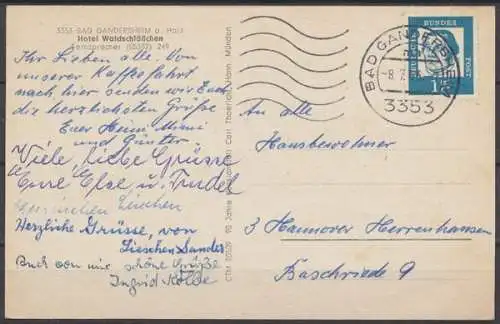 3353 BAD GANDERSHEIM a. Harz
Hotel Waldschlößchen
Fernsprecher (05382) 249
Ihr Lieben alle. Von
unserer Kaffefahrt
nach hier senden wir Euch
die herzlichsten Grüße
Euer Heini, Mimi
und Günter.
Viele, liebe Grüsse
Eure Else u. Trudel
Lieschen
Herzliche Grüsse, von
Lieschen Sander
Auch von mir schöne Grüße
Ingrid Kolde
CTM 80529 90 Jahre Carl Thoericht, Hann. Münden
BAD GANDERSHEIM
3353
DEUTSCHE BUNDESPOST
15
An alle
Hausbewohner
3 Hannover Herrenhausen
Baschriede 9